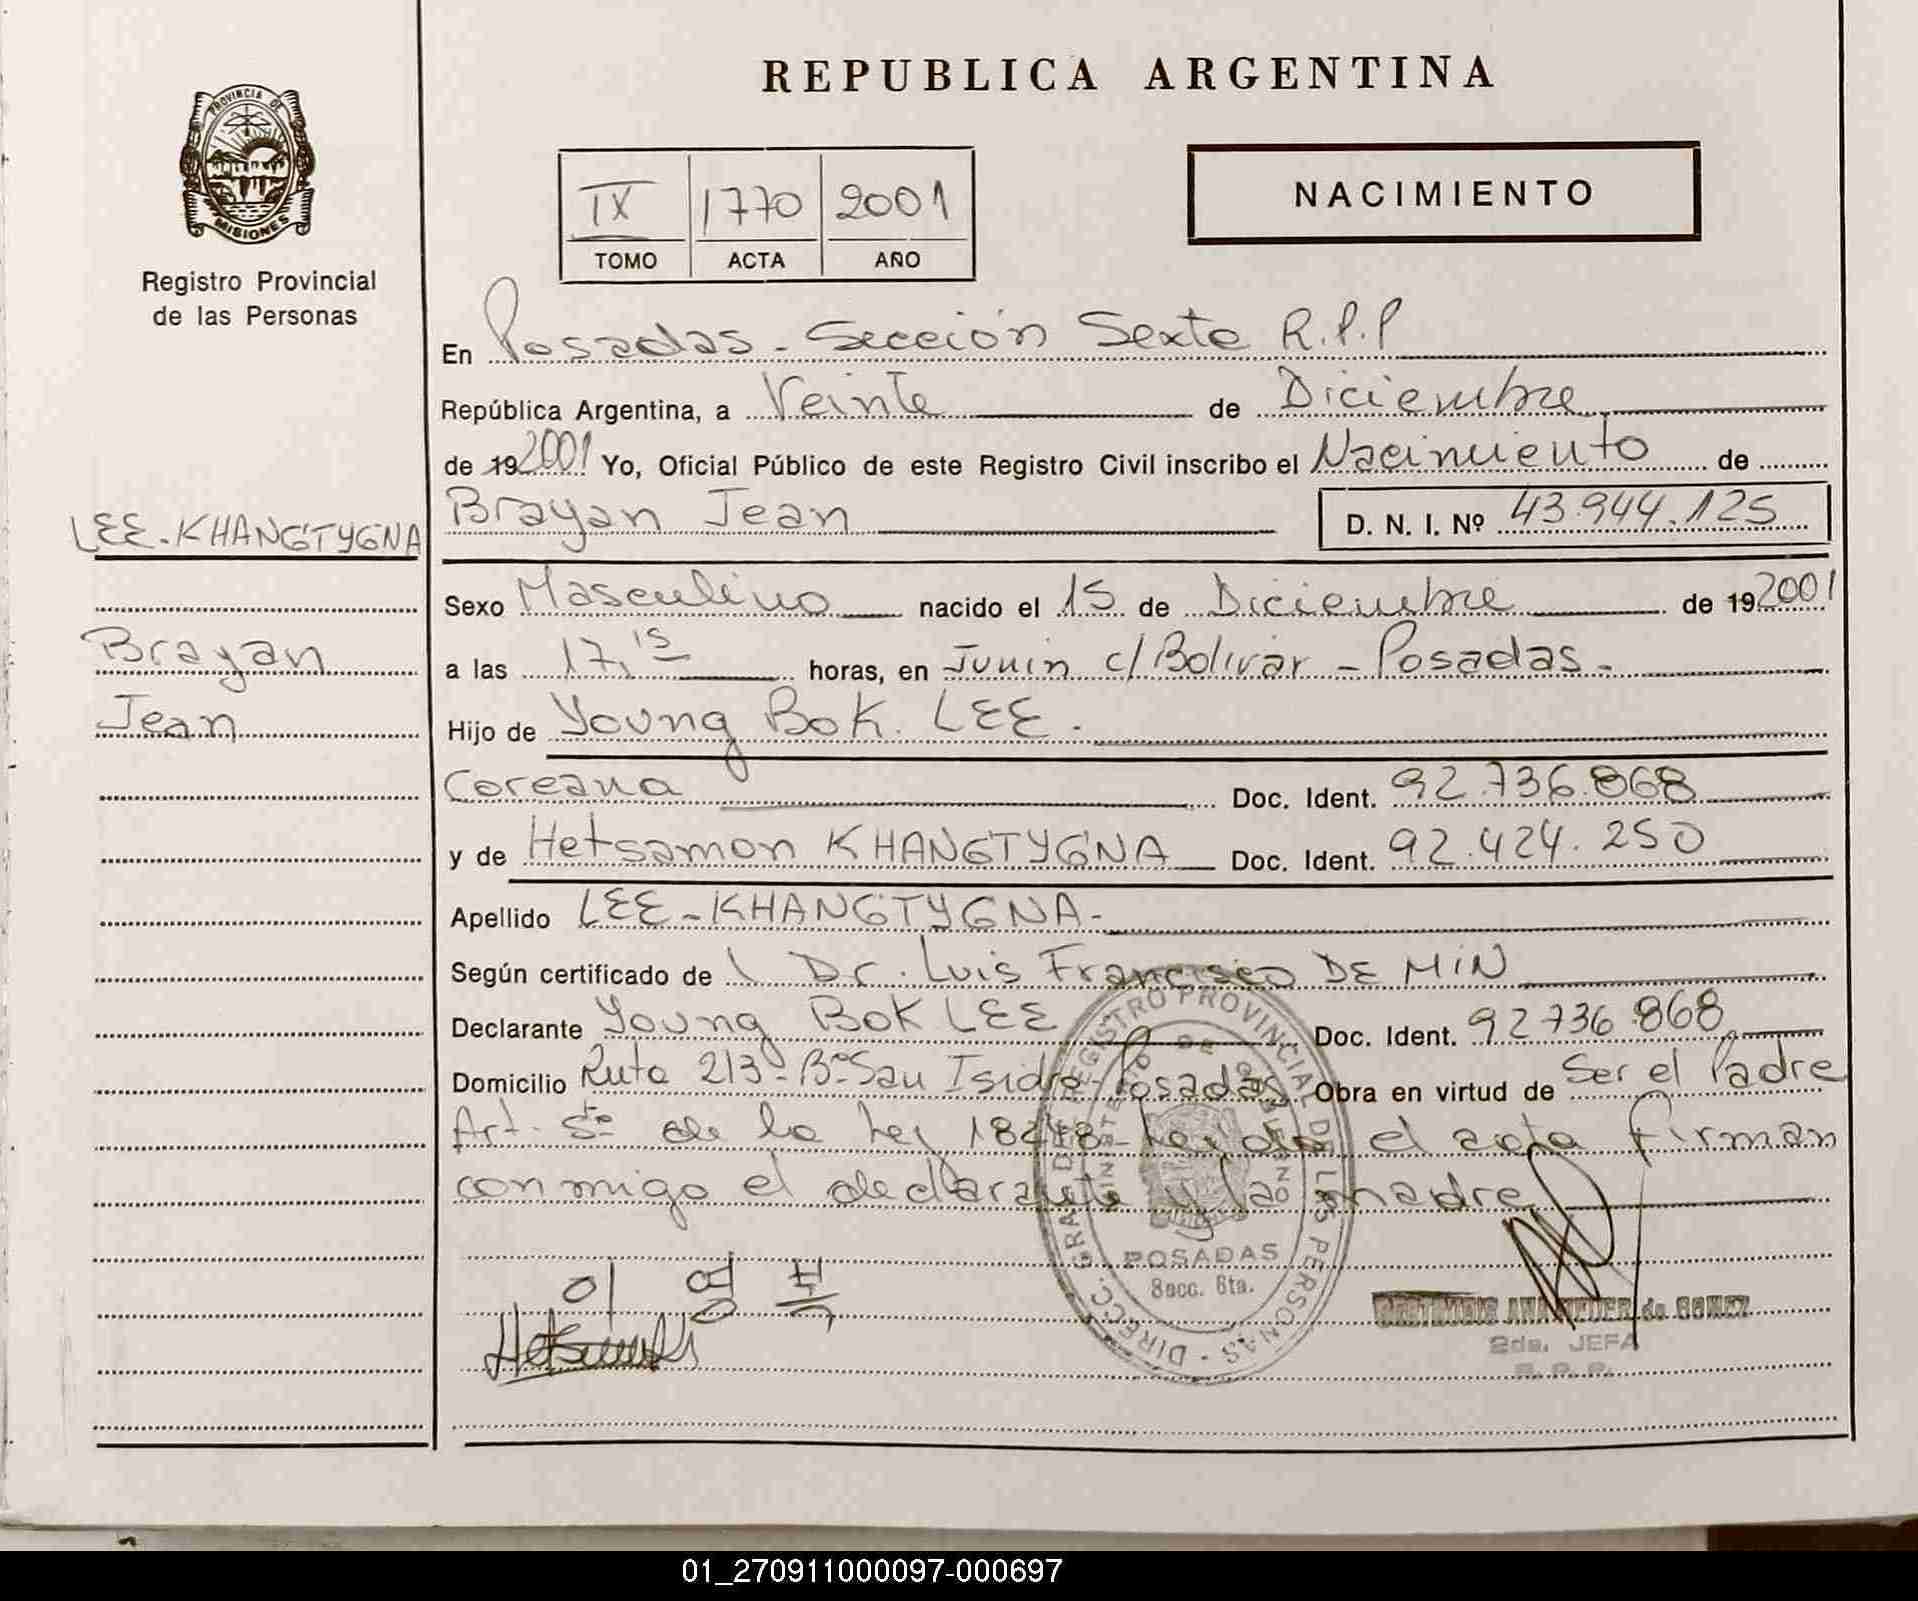 REPUBLICA ARGENTINA
PROVINCIA DE
MISIONES
Registro Provincial
de las Personas
IX 1770 2001
TOMO ACTA AÑO
NACIMIENTO
En Posadas - Sección Sexta R.P.P
República Argentina, a Veinte de Diciembre
de 19 2001 Yo, Oficial Público de este Registro Civil inscribo el Nacimiento de
Brayan Jean D. N. I. Nº 43.944.125
LEE-KHANGTYGNA
Brayan
Jean
Sexo Masculino nacido el 15 de Diciembre de 19 2001
a las 17,15 horas, en Junin c/ Bolivar - Posadas -
Hijo de Young Bok LEE.
Coreana Doc. Ident. 92.736.868
y de Hetsamon KHANGTYGNA Doc. Ident. 92.424.250
Apellido LEE-KHANGTYGNA-
Según certificado de Dr. Luis Francisco DE MIN
Declarante Young Bok LEE Doc. Ident. 92736.868
Domicilio Ruta 213 - Bº San Isidro - Posadas Obra en virtud de Ser el Padre
Art. 5to de la Ley 18248 - Leyda el acta firman
conmigo el declarante y la madre
이 영 복
DIRECC. GRAL. DE REGISTRO PROVINCIAL DE LAS PERSONAS
MINISTERIO DE GOBIERNO
POSADAS
Secc. 6ta.
de GOMEZ
2da. JEFA
R. P. P.
01_270911000097-000697